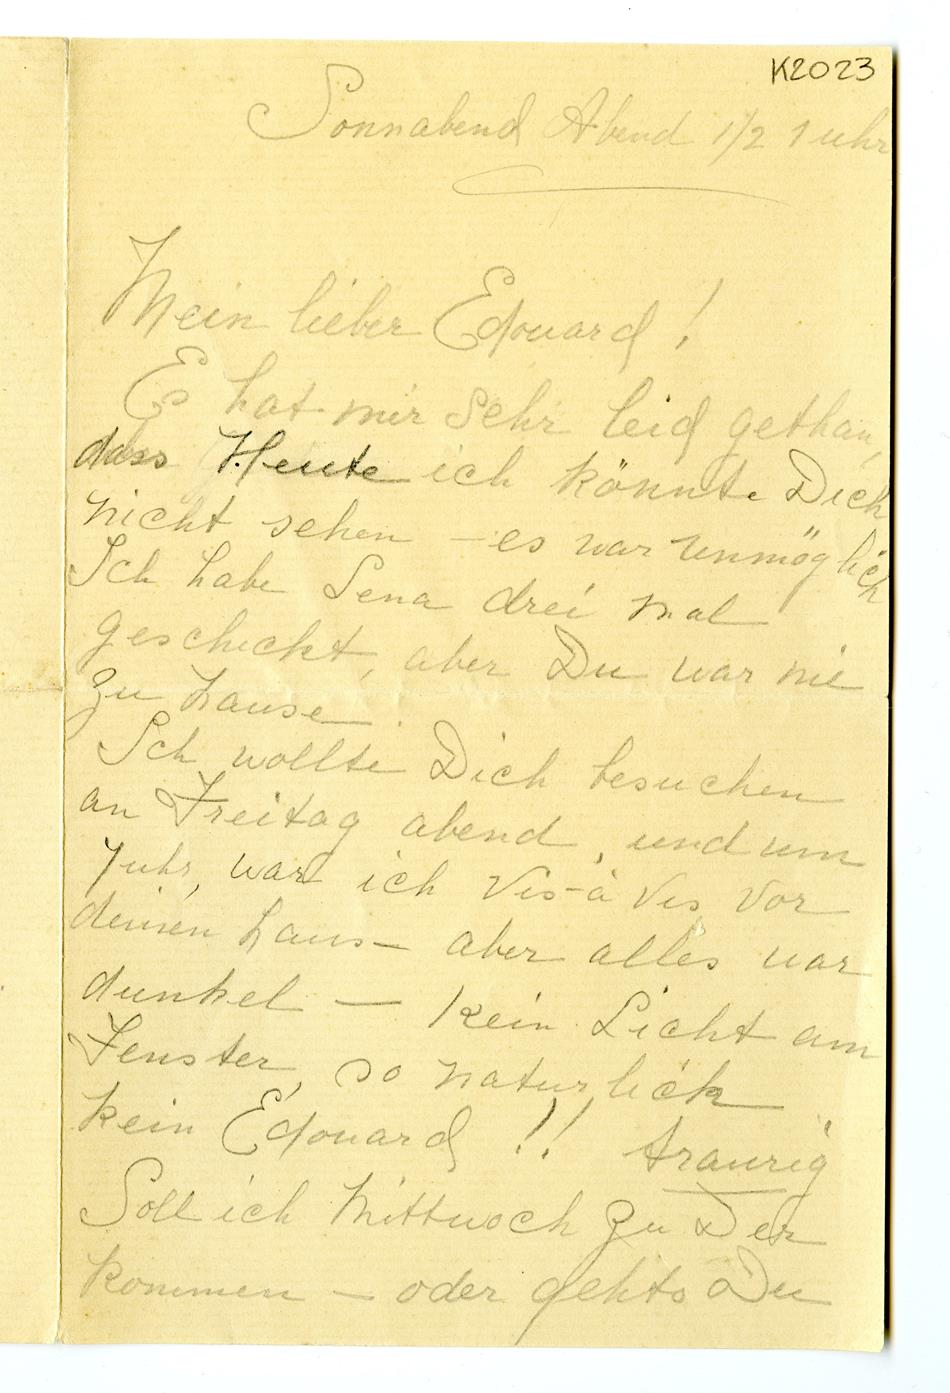 K2023
Sonnabend Abend 1/2 1 uhr
Mein lieber Edouard !
Es hat mir sehr leid gethan,
dass Heute ich könnte Dich
nicht sehen – es war unmöglich
Ich habe Lena drei mal
geschickt, aber Du war nie
zu hause.
Ich wollte Dich besuchen
an Freitag abend, und um
7 uhr, war ich vis-à vis vor
deinen haus – aber alles war
dunkel — kein Licht am
Fenster, so naturlick
kein Edouard !! traurig
Soll ich Mittwoch zu Der
kommen – oder gehts Du